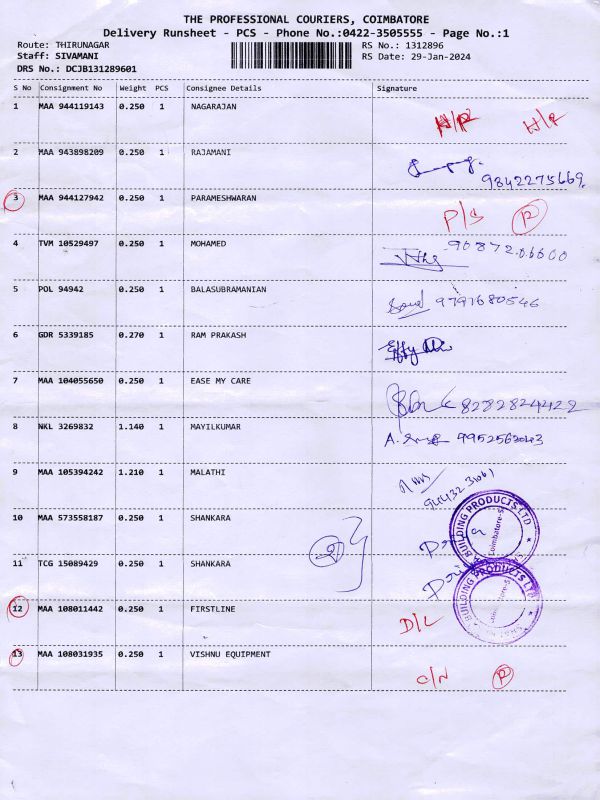 THE PROFESSIONAL COURIERS, COIMBATORE
Delivery Runsheet - PCS - Phone No.:0422-3505555 - Page No.:1
Route: THIRUNAGAR RS No.: 1312896
Staff: SIVAMANI RS Date: 29-Jan-2024
DRS No.: DCJB131289601
S No Consignment No Weight PCS Consignee Details Signature
1 MAA 944119143 0.250 1 NAGARAJAN
H/R H/R
2 MAA 943898209 0.250 1 RAJAMANI
9842275669.
3 MAA 944127942 0.250 1 PARAMESHWARAN
P/S R
4 TVM 10529497 0.250 1 MOHAMED
9087206600
5 POL 94942 0.250 1 BALASUBRAMANIAN
9791680546
6 GDR 5339185 0.270 1 RAM PRAKASH
7 MAA 104055650 0.250 1 EASE MY CARE
8282824422
8 NKL 3269832 1.140 1 MAYILKUMAR
9 MAA 105394242 1.210 1 MALATHI
10 MAA 573558187 0.250 1 SHANKARA
BUILDING PRODUCTS LTD
Coimbatore-5
11 TCG 15089429 0.250 1 SHANKARA
BUILDING PRODUCTS LTD
12 MAA 108011442 0.250 1 FIRSTLINE
D/L
13 MAA 108031935 0.250 1 VISHNU EQUIPMENT
C/N R